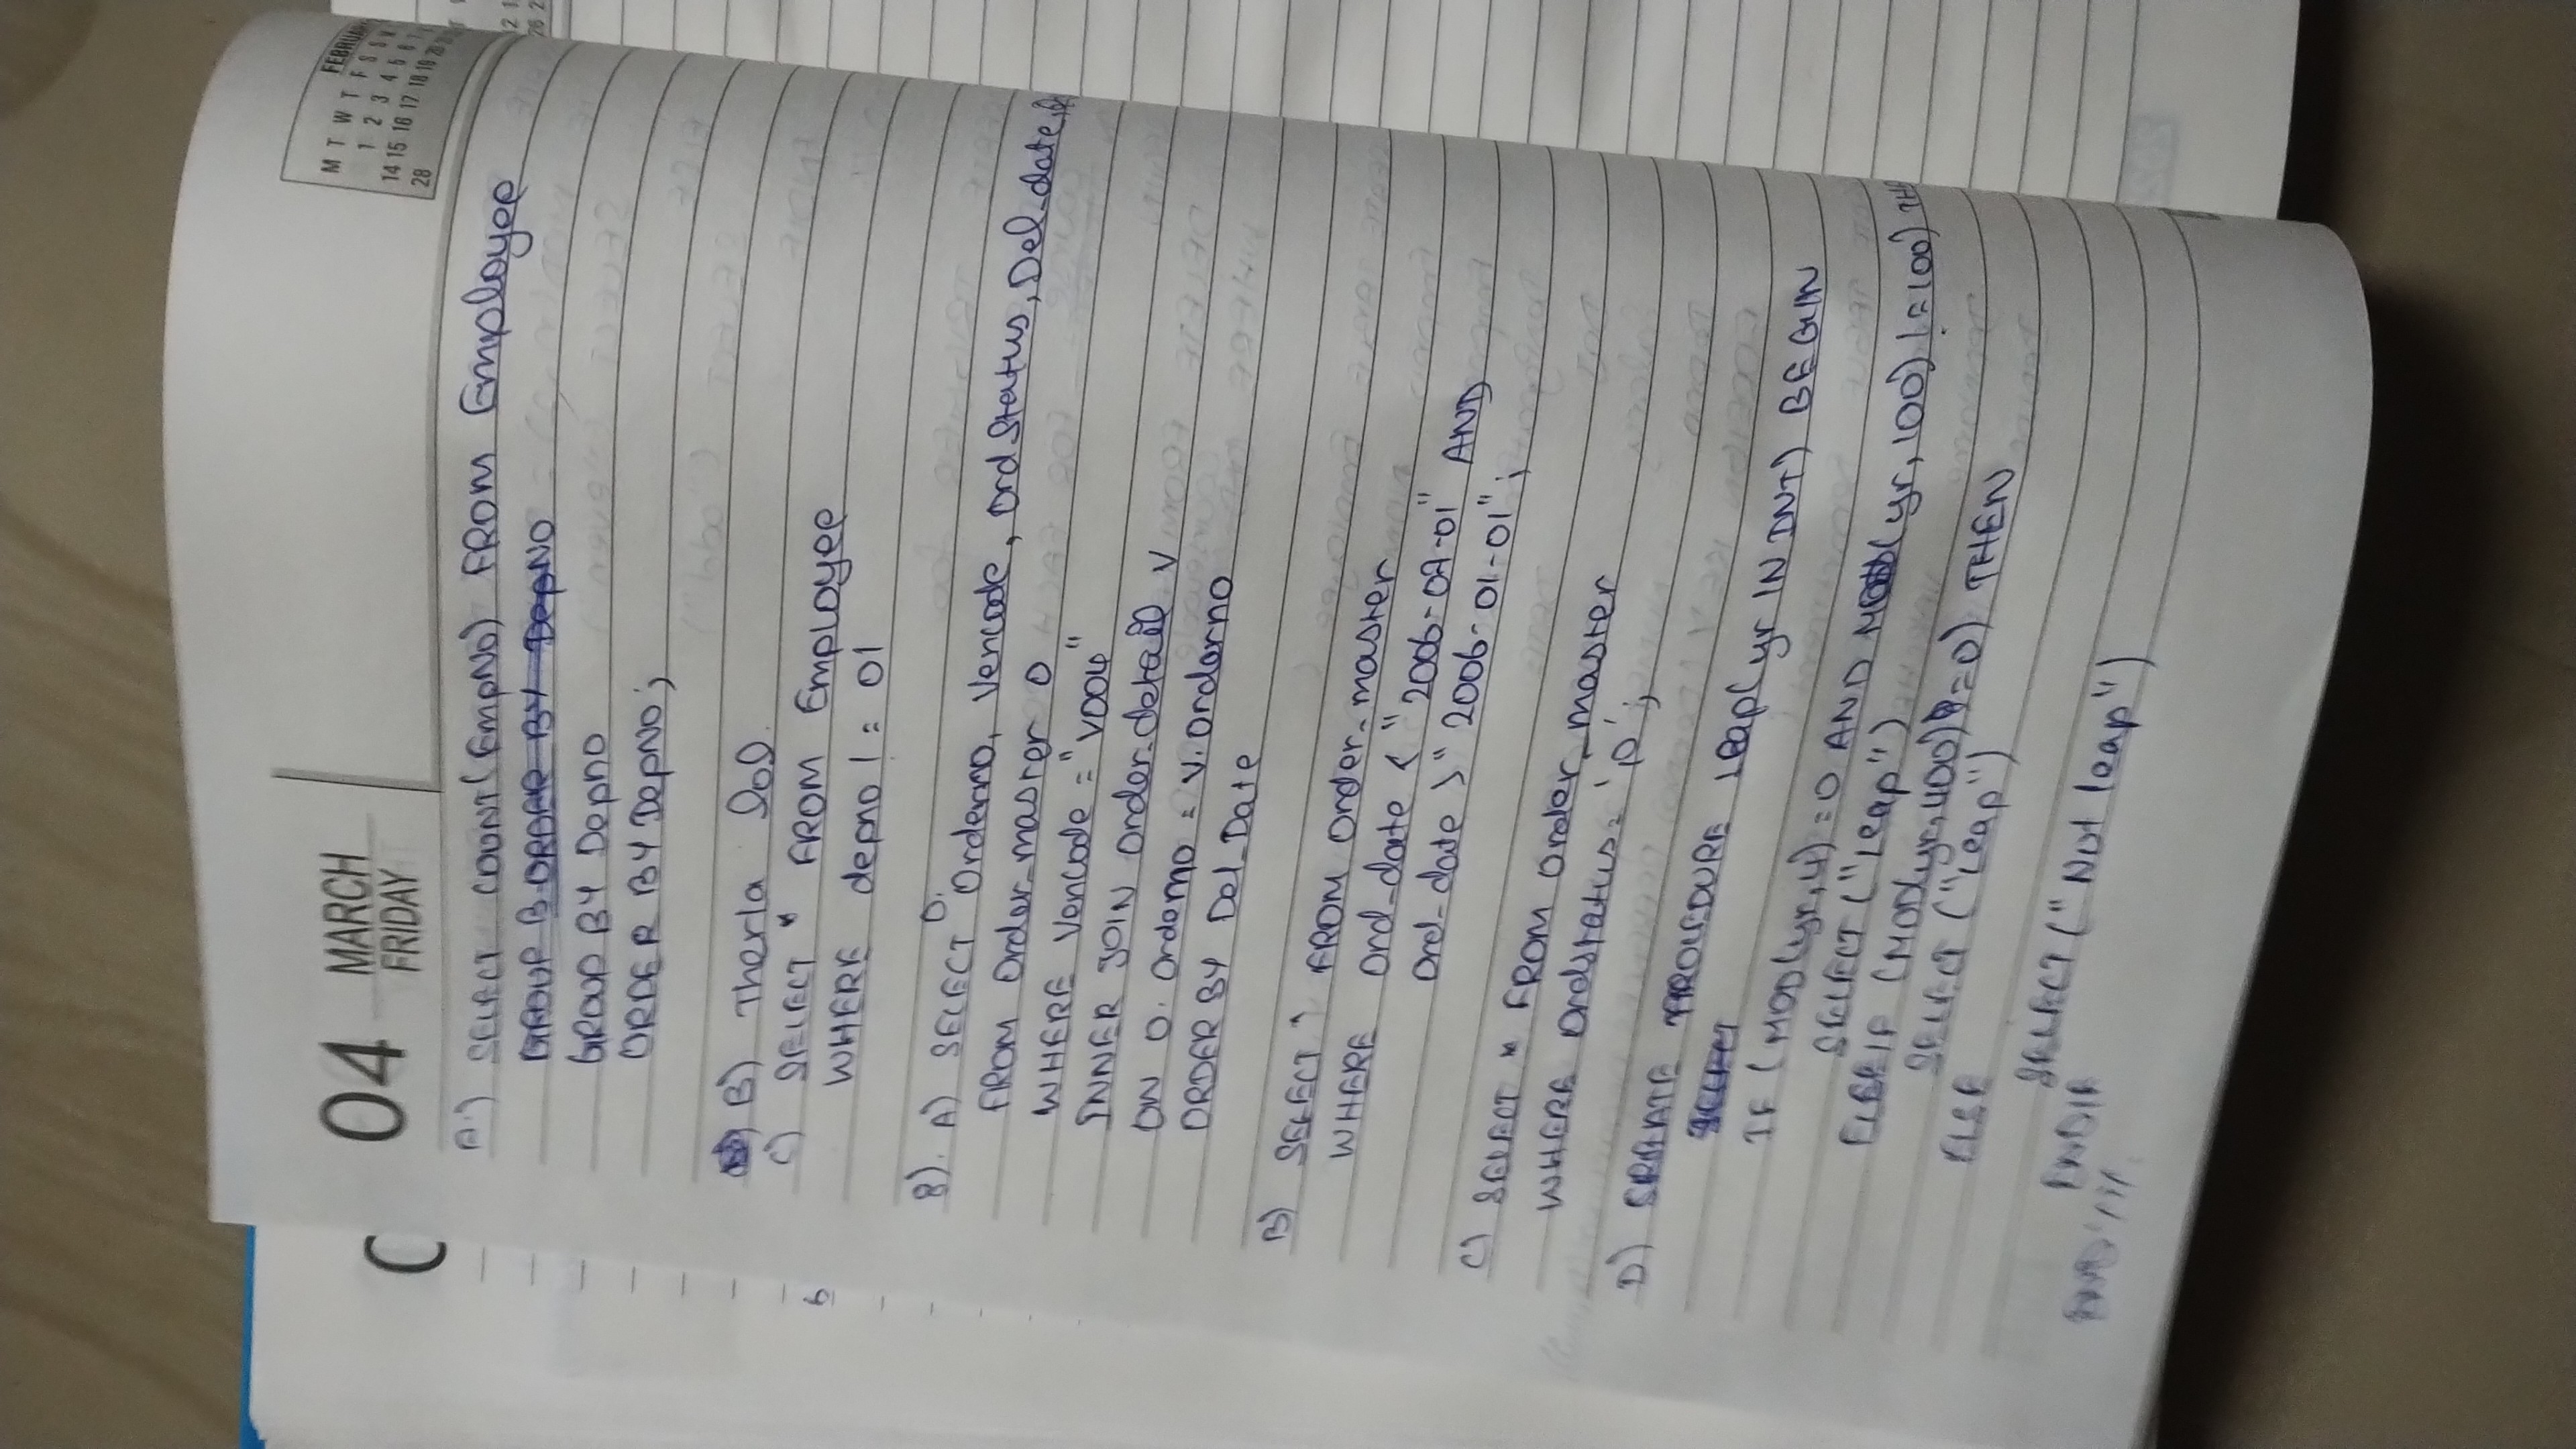 04 MARCH
FRIDAY
FEBRUARY
M T W T F S S
1 2 3 4 5 6
14 15 16 17 18 19 20
28
A.) SELECT COUNT(EmpNo) FROM Employee
GROUP B ORDER BY DepNO
GROUP BY Depno
ORDER BY DepNo;
B) Therla lol.
C) SELECT * FROM Employee
WHERE depno != 01
8). A) SELECT O.Orderno, Vencode, Ord Status, Del_date,
FROM Order_master O
WHERE Vencode = "V004"
INNER JOIN Order_detail V
ON O.Orderno = V.Orderno
ORDER BY Del_Date
B) SELECT * FROM Order_master
WHERE Ord_date < "2006-07-01" AND
Ord_date > "2006-01-01";
C) SELECT * FROM Order_master
WHERE Ordstatus = 'p';
D) CREATE PROCEDURE Leap(yr IN INT) BEGIN
SELECT
IF (MOD(yr,4) = 0 AND MOD(yr,100) != 100) THE
SELECT ("Leap")
ELSEIF (MOD(yr,400) = 0) THEN
SELECT ("Leap")
ELSE
SELECT ("Not leap")
ENDIF
END